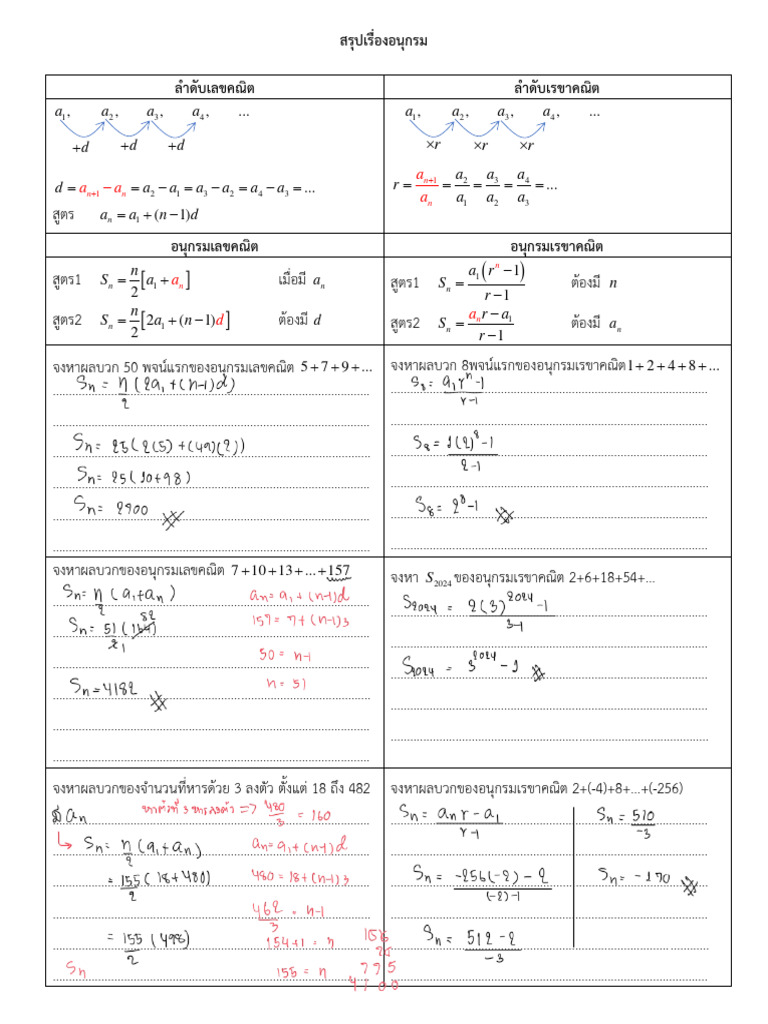 สรุปเรื่องอนุกรม
ลำดับเลขคณิต
a₁, a₂, a₃, a₄, ...
+d +d +d
d = aₙ₊₁ − aₙ = a₂ − a₁ = a₃ − a₂ = a₄ − a₃ = ...
สูตร aₙ = a₁ + (n − 1)d
ลำดับเรขาคณิต
a₁, a₂, a₃, a₄, ...
×r ×r ×r
r = aₙ₊₁/aₙ = a₂/a₁ = a₃/a₂ = a₄/a₃ = ...
อนุกรมเลขคณิต
สูตร1 Sₙ = n/2 [a₁ + aₙ] เมื่อมี aₙ
สูตร2 Sₙ = n/2 [2a₁ + (n − 1)d] ต้องมี d
อนุกรมเรขาคณิต
สูตร1 Sₙ = a₁(rⁿ − 1)/(r − 1) ต้องมี n
สูตร2 Sₙ = (aₙr − a₁)/(r − 1) ต้องมี aₙ
จงหาผลบวก 50 พจน์แรกของอนุกรมเลขคณิต 5 + 7 + 9 + ...
Sₙ = n/2 (2a₁ + (n-1)d)
Sₙ = 25(2(5) + (49)(2))
Sₙ = 25(10+98)
Sₙ = 2900
จงหาผลบวก 8พจน์แรกของอนุกรมเรขาคณิต 1 + 2 + 4 + 8 + ...
S₈ = a₁rⁿ-1/r-1
S₈ = 1(2)⁸-1/2-1
S₈ = 2⁸-1
จงหาผลบวกของอนุกรมเลขคณิต 7 + 10 + 13 + ... + 157
Sₙ = n/2 (a₁+aₙ)
Sₙ = 51/2 (164)
82
1
Sₙ = 4182
aₙ = a₁ + (n-1)d
157 = 7 + (n-1)3
50 = n-1
n = 51
จงหา S₂₀₂₄ ของอนุกรมเรขาคณิต 2+6+18+54+...
S₂₀₂₄ = 2(3)²⁰²⁴-1/3-1
S₂₀₂₄ = 3²⁰²⁴-1
จงหาผลบวกของจำนวนที่หารด้วย 3 ลงตัว ตั้งแต่ 18 ถึง 482
มี aₙ
หาตัวที่ 3 หารลงตัว => 480/3 = 160
Sₙ = n/2 (a₁+aₙ)
= 155/2 (18+480)
= 155/2 (498)
Sₙ
aₙ = a₁ + (n-1)d
480 = 18 + (n-1)3
462/3 = n-1
154+1 = n
155 = n
775
จงหาผลบวกของอนุกรมเรขาคณิต 2+(-4)+8+...+(-256)
Sₙ = aₙr - a₁/r-1
Sₙ = -256(-2) - 2/(-2)-1
Sₙ = 512-2/-3
Sₙ = 510/-3
Sₙ = -170